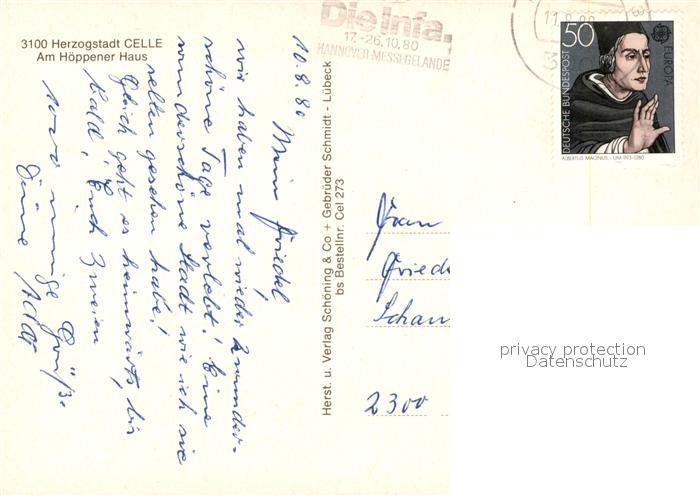 3100 Herzogstadt CELLE
Am Höppener Haus
10.8.80
Mein Friedel
wir haben mal wieder 2 wunder-
schöne Tage verlebt! Eine
wunderschöne Stadt wie ich sie
selten gesehen habe!
Gleich geht es heimwärts, bis
bald, Euch Zweien
innige Grüße
Deine
Herst. u. Verlag Schöning & Co + Gebrüder Schmidt - Lübeck
bs Bestellnr. Cel 273
Die Infa,
17.-26.10.80
HANNOVER-MESSEGELÄNDE
50
DEUTSCHE BUNDESPOST
EUROPA
ALBERTUS MAGNUS · UM 1193-1280
Frau
Fried
Schau
2300
privacy protection
Datenschutz